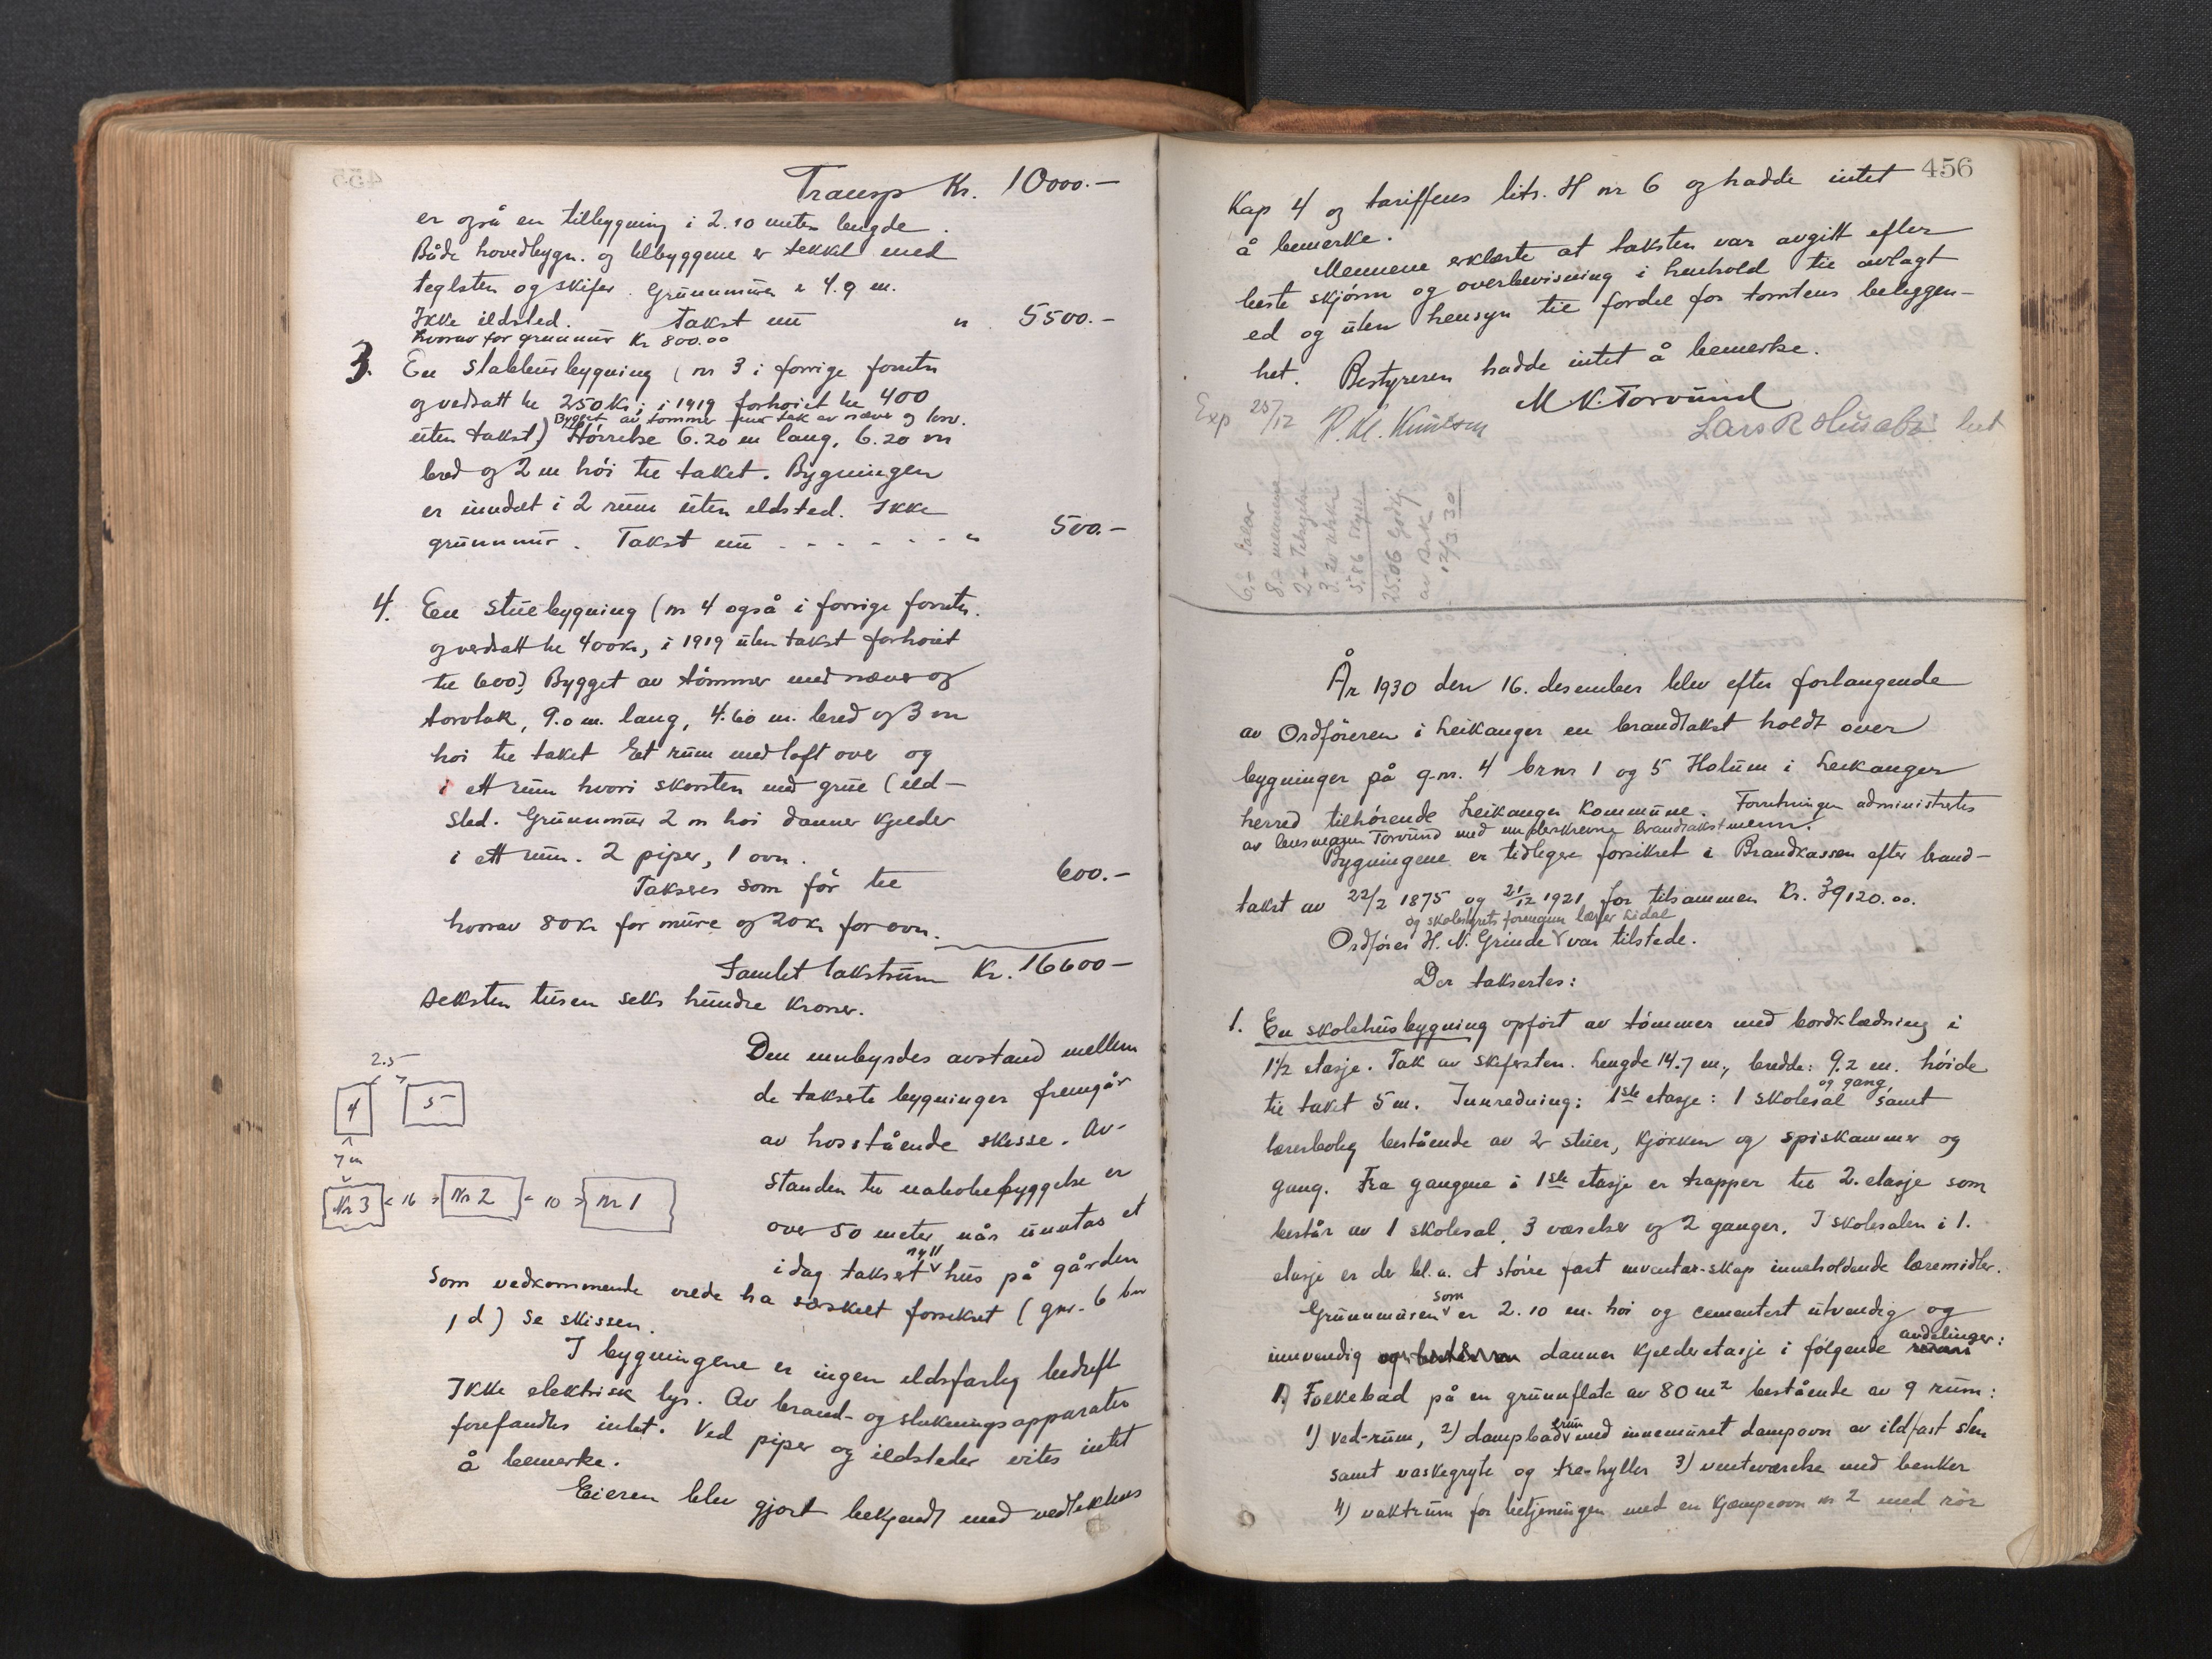 Transp Kr. 10000.-
er også en tilbygning i 2.10 meter lengde.
Både hovedbygn. og tilbyggene er tekket med
teglsten og skifer. Grunnmuren er 4.9 m.
Ikke ildsted. Takst nu " 5500.-
hvorav for grunnmur Kr 800.00
3. En stabbursbygning (nr 3 i forrige forretn
og verdsatt til 250 Kr; i 1919 forhøiet til 400
Bygget av tømmer tak av næver og torv.
uten takst) Størrelse 6.20 m lang, 6.20 m
bred og 2 m høi til taket. Bygningen
er inndelt i 2 rum uten eldsted. Ikke
grunnmur. Takst nu - - - - - - " 500.-
4. En stuebygning (nr 4 også i forrige forretn.
og verdsatt til 400 kr, i 1919 uten takst forhøiet
til 600) Bygget av tømmer med næver og
torvtak, 9.0 m. lang, 4.60 m. bred og 3 m
høi til taket Et rum med loft over og
i ett rum hvori skorsten med grue (ild-
sted. Grunnmur 2 m høi danner kjelder
i ett rum. 2 piper, 1 ovn.
Takseres som før til 600.-
hvorav 80 kr for mure og 20 kr for ovn.
Samlet takstsum Kr. 16600-
seksten tusen seks hundre kroner.
Den innbyrdes avstand mellem
de takserte bygninger fremgår
av hosstående skisse. Av-
standen til nabobebyggelse er
over 50 meter når unntas et
nytt
idag taksert hus på gården
som vedkommende vilde ha særskilt forsikret (gnr. 6 bnr
1 d) Se skissen.
2.5
4 5
7 m
Nr 3 16 Nr 2 10 nr 1
I bygningene er ingen ildsfarlig bedrift
Ikke elektrisk lys. Av brand- og slukningsapparater
forefandtes intet. Ved piper og ildsteder vites intet
å bemerke.
Eieren blev gjort bekjendt med vedtekters
456
Kap 4 og tariffens litr. H nr 6 og hadde intet
å bemerke.
Mennene erklærte at taksten var avgitt efter
beste skjønn og overbevisning i henhold til avlagt
ed og uten hensyn til fordel for tomtens beliggen-
het. Bestyreren hadde intet å bemerke.
M K. Torvund
Exp 23/12 Lars R Husabø
8.- mennene
25.06
12/3 30
År 1930 den 16. desember blev efter forlangende
av Ordføreren i Leikanger en brandtakst holdt over
bygninger på g-nr. 4 brnr 1 og 5 Holum i Leikanger
herred tilhørende Leikanger Kommune. Forretningen administrertes
av lensmann Torvund med underskrevne brandtakstmenn.
Bygningene er tidligere forsikret i Brandkassen efter brand-
takst av 22/2 1875 og 21/12 1921 for tilsammen Kr. 39120.00.
og skolestyrets formann lærer Lidal
Ordfører H. N. Grinde var tilstede.
Der taksertes:
1. En skolehusbygning opført av tømmer med bordklædning i
1½ etasje. Tak av skifersten. Lengde 14.7 m., bredde: 9.2 m. høide
og gang,
til taket 5 m. Innredning: 1ste etasje: 1 skolesal samt
lærerbolig bestående av 2 stuer, kjøkken og spiskammer og
gang. Fra gangene i 1ste etasje er trapper til 2. etasje som
består av 1 skolesal, 3 værelser og 2 ganger. I skolesalen i 1.
etasje er der bl.a. et større fast inventar-skap inneholdende læremidler.
som
Grunnmuren er 2.10 m. høi og cementert utvendig og
avdelinger:
innvendig danner kjelderetasje i følgende
1) Folkebad på en grunnflate av 80 m² bestående av 9 rum:
rum
1) Ved-rum, 2) dampbad med innemuret dampovn av ildfast sten
samt vaskegryte og tre-hyller 3) venteværelse med benker
4) vaktrum for betjeningen med en Kjempeovn nr 2 med rör